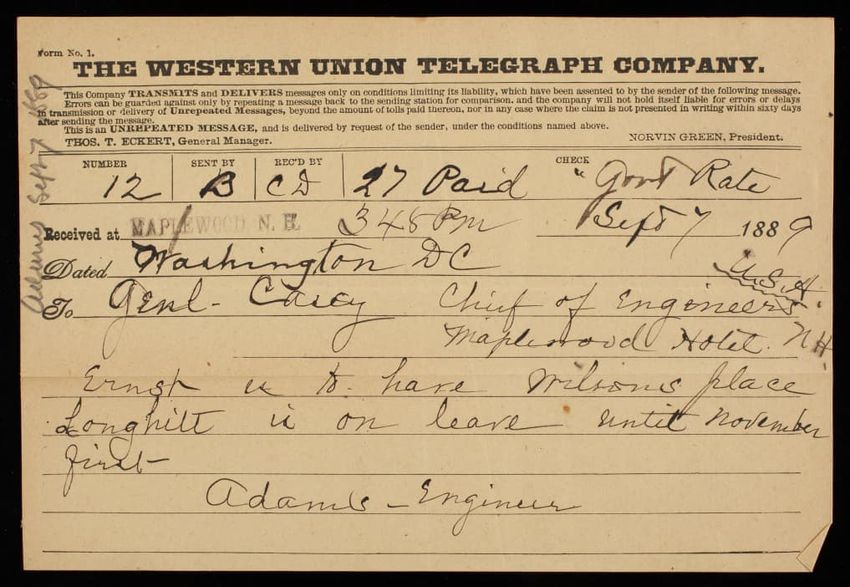 Form No. 1.
THE WESTERN UNION TELEGRAPH COMPANY.
This Company TRANSMITS and DELIVERS messages only on conditions limiting its liability, which have been assented to by the sender of the following message.
Errors can be guarded against only by repeating a message back to the sending station for comparison, and the company will not hold itself liable for errors or delays
in transmission or delivery of Unrepeated Messages, beyond the amount of tolls paid thereon, nor in any case where the claim is not presented in writing within sixty days
after sending the message.
This is an UNREPEATED MESSAGE, and is delivered by request of the sender, under the conditions named above.
THOS. T. ECKERT, General Manager. NORVIN GREEN, President.
NUMBER SENT BY REC'D BY CHECK
12 B CD 27 Paid " Govt Rate
Received at MAPLEWOOD N. H. 348 PM Sept 7 1889
Dated Washington DC
U.S.A.
To Genl- Casey Chief of Engineers
Maplewood Hotel. NH.
Ernst is to have Wilsons place
Longhitt is on leave until November
first-
Adams - Engineer
Adams Sept 7 1889